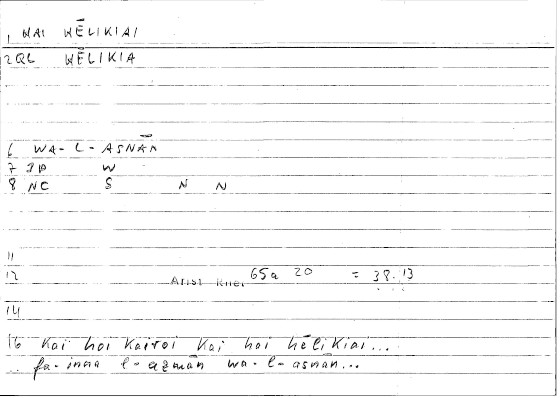 1 HAI HĒLIKIAI
2 QL HĒLIKIA
6 WA-L-ASNĀN
7 JP W
8 NC S N N
11
12 Arist Rhet 65a 20 = 38.13
14
16 kai hoi kairoi kai hai hēlikiai...
fa-inna l-azmān wa-l-asnān...